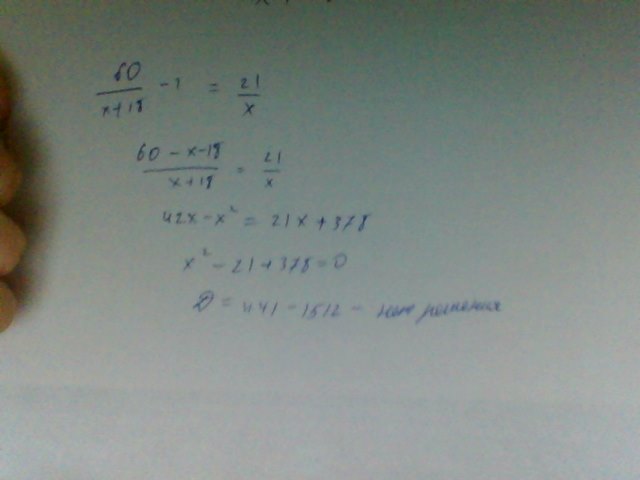 60/(x+18) - 1 = 21/x
(60-x-18)/(x+18) = 21/x
42x-x² = 21x+378
x²-21+378=0
D = 441-1512 - нет решения